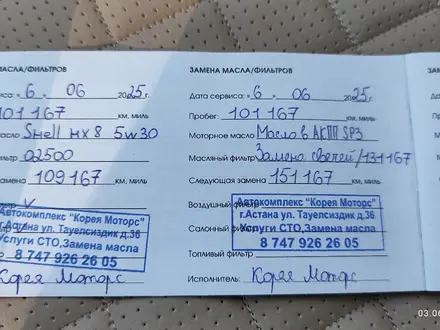 МАСЛА/ФИЛЬТРОВ
виса: « 6 » 06 2025 г.
101 167 км, миль
асло Shell HX8 5w30
ьтр 02500
амена 109 167 км, миль
тр V
Автокомплекс "Корея Моторс"
г.Астана ул. Тауелсиздик д.36
Услуги СТО,Замена масла
8 747 926 26 05
Корея Моторс
ЗАМЕНА МАСЛА/ФИЛЬТРОВ
Дата сервиса: « 6 » 06 2025 г.
Пробег: 101 167 км, миль
Моторное масло Масло в АКПП SP3
Масляный фильтр Замена свечей/131167
Следующая замена 151 167 км, миль
Воздушный фильтр
Автокомплекс "Корея Моторс"
г.Астана ул. Тауелсиздик д.36
Салонный фильтр
Услуги СТО,Замена масла
8 747 926 26 05
Топливный фильтр
Исполнитель: Корея Моторс